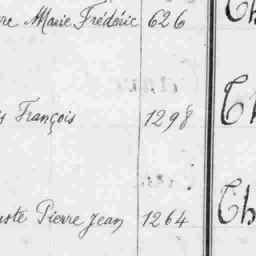 re Marie Frédéric 626 Th
is François 1298 Th
uste Pierre Jean 1264 Th